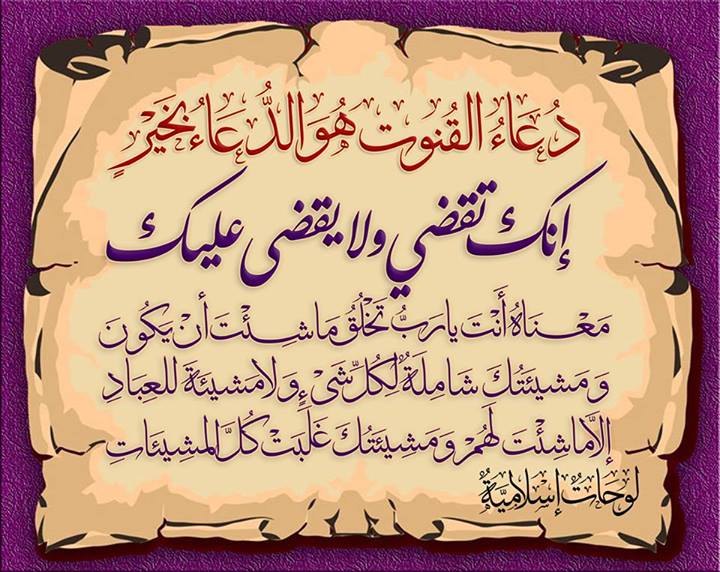 دُعَاءُ القُنوت هُوَ الدُّعَاءُ بِخَيْرٍ
إنك تقضي ولا يقضى عليك
مَعْنَاهُ أَنْتَ يا رَبُّ تَخْلُقُ مَا شِئْتَ أَنْ يَكُونَ
وَمَشيئَتُكَ شَامِلَةٌ لِكُلِّ شَىْءٍ وَلا مَشيئةَ للعِبادِ
إلاَّ ما شئْتَ لَهُمْ وَمَشِيئَتُكَ غَلَبَتْ كُلَّ المَشيئَاتِ
لوحَاتٌ إسْلاميَّةٌ